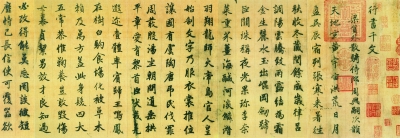 行書千文
梁員外散騎侍郎周興嗣次韻
天地玄黃宇宙洪荒日月
盈昃辰宿列張寒來暑往
秋收冬藏閏餘成歲律呂
調陽雲騰致雨露結為霜
金生麗水玉出崑崗劍號
巨闕珠稱夜光菓珍李柰
菜重芥薑海鹹河淡鱗潛
羽翔龍師火帝鳥官人皇
始制文字乃服衣裳推位
讓國有虞陶唐弔民伐罪
周發殷湯坐朝問道垂拱
平章愛育黎首臣伏戎羌
遐邇壹體率賓歸王鳴鳳
在樹白駒食場化被草木
賴及萬方蓋此身髮四大
五常恭惟鞠養豈敢毀傷
女慕貞潔男效才良知過
必改得能莫忘罔談彼短
靡恃己長信使可覆器欲